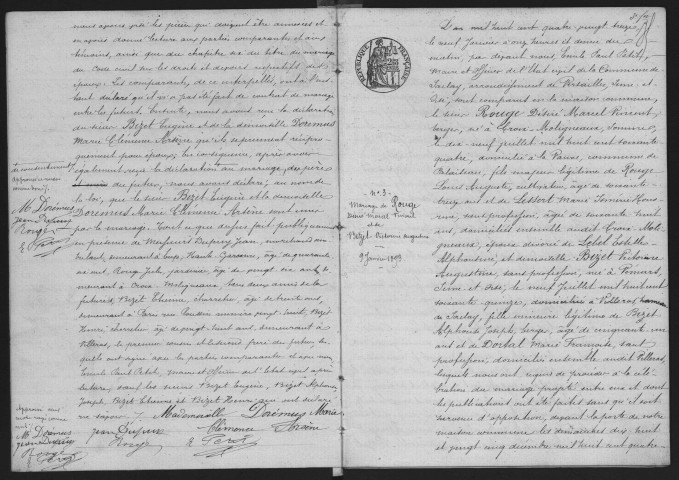 nous avons visé les pièces qui doivent être annexées et
témoins, ainsi que du chapitre six du titre du mariage
du Code civil sur les droits et devoirs respectifs des
époux. Les comparants, de ce interpellés, ont à l'ins-
tant déclaré qu'il n'a pas été fait de contrat de mariage
entre les futurs. Ensuite, nous avons reçu la déclaration
du sieur Bizet Eugène et de la demoiselle Dorémus
Marie Clémence Arsène qu'ils se prennent récipro-
quement pour époux; En conséquence, après avoir
également reçu la déclaration au mariage, des pères
du futur, nous avons déclaré, au nom de
la loi, que le sieur Bizet Eugène et la demoiselle
Dorémus Marie Clémence Arsène sont unis
par le mariage. Tout ce que dessus fait publiquement
en présence de Messieurs Dupuy Jean, marchand
demeurant à Loup, Haute Garonne, âgé de quarante
ans, Rouge Jules, jardinier, âgé de vingt ans
demeurant à Croix Moligneaux, tous deux amis de la
future, Bizet Etienne, charretier, âgé de trente ans,
demeurant à Paris rue vingt huit, Bizet
Henri charretier âgé de vingt huit ans, demeurant à
Villeras, le premier cousin et le dernier frère du futur, les
quels ont signé avec les parties comparantes et avec nous
Emile Paul Petit, maire et officier de l'état civil après
lecture, sauf les sieurs Bizet Eugène, Bizet Alphonse
Joseph, Bizet Etienne et Bizet Henri, qui ont déclaré
ne savoir /. Mademoiselle Dorémus Marie
Clémence Arsène
jean Dupuy
Rouge
E. Petit
du consentement
Approuvé
M. Dorémus
jean Dupuy
Rouge
E. Petit
M. Dorémus
jean Dupuy
Rouge
E. Petit
RÉPUBLIQUE FRANÇAISE
- N° 3 -
Mariage de Rouge
Désiré Marcel Vincent
et de
Bizet Victorine Augustine
9 Janvier 1893
L'an mil huit cent quatre vingt treize,
le neuf Janvier à onze heures et demie du
matin, par devant nous, Emile Paul Petit,
Maire et Officier de l'Etat civil de la Commune de
Saclay, arrondissement de Versailles, Seine et
Oise, sont comparus en la maison commune,
le sieur Rouge Désiré Marcel Vincent,
berger, né à Croix-Moligneaux, Somme,
le dix neuf Juillet mil huit cent soixante
quatre, domicilié à la commune de
Palaiseau, fils majeur légitime de Rouge
Louis Auguste, cultivateur, âgé de soixante
treize ans et de Lessort Marie
sans profession, âgée de soixante huit
ans, domiciliés ensemble audit Croix-Moli-
gneaux, époux divorcé de Lebel Estelle
Alphonsine, et demoiselle Bizet Victorine
Augustine, sans profession, née à Vémars,
Seine et Oise, le neuf Juillet mil huit cent
soixante quinze, domiciliée à Villeras, hameau
de Saclay, fille mineure légitime de Bizet
Alphonse Joseph, berger, âgé de cinquante un
ans et de Marie sans
profession, domiciliés ensemble audit Villeras,
lesquels nous ont requis de procéder à la célé-
bration du mariage projeté entre eux et dont
les publications ont été faites sans qu'il soit
survenu d'opposition, devant la porte de notre
maison commune les dimanches dix huit
et vingt cinq décembre mil huit cent quatre